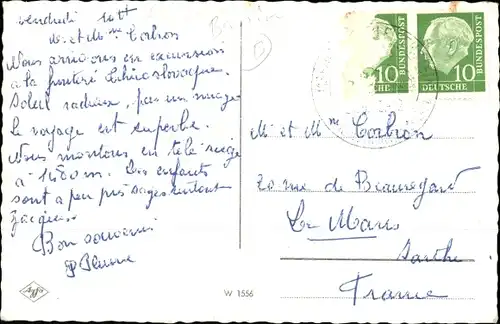 vendredi 10 tt
M. et Mme Corbron
Nous arrivons en excursion
à la frontière Tchécoslovaque.
Soleil radieux, pas un nuage
Le voyage est superbe.
Nous montons en télé siège
à 1400 m. Les enfants
sont à peu près sages surtout
Jacques.
Bon souvenir
Blume
Agfa
W 1556
10
DEUTSCHE
BUNDESPOST
10
DEUTSCHE
BUNDESPOST
M et Mme Corbron
20 rue de Beauregard
Le Mans
Sarthe
France